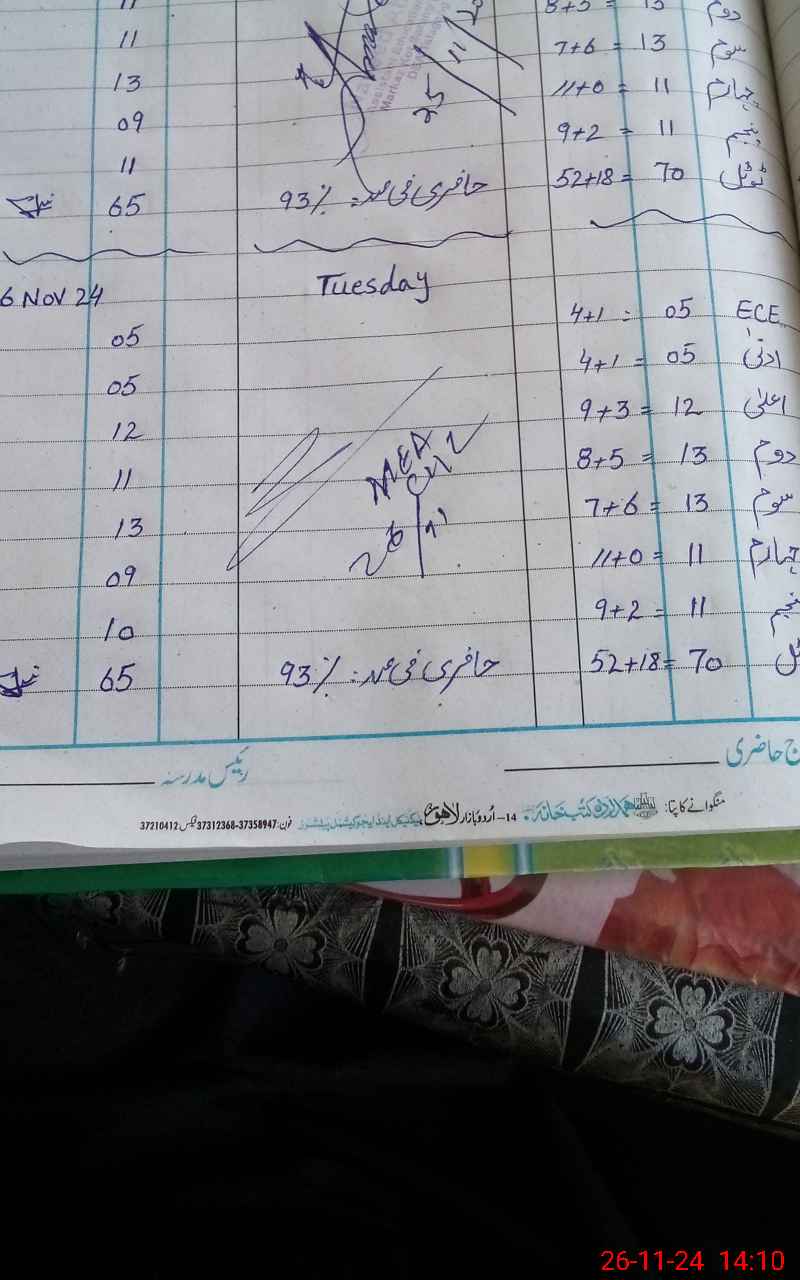 8+5 = 13 دوم 11
7+6 = 13 سوم 11
11+0 = 11 چہارم 13
9+2 = 11 پنجم 09
25/11/20
11
52+18 = 70 ٹوٹل حاضری فی صد: 93% 65
6 Nov 24 Tuesday
ECE 05 = 4+1 05
ادنیٰ 05 = 4+1 05
اعلیٰ 12 = 9+3 12
دوم 13 = 8+5 11
سوم 13 = 7+6 13
چہارم 11 = 11+0 09
پنجم 11 = 9+2 10
MEA
26/11
70 = 52+18 حاضری فی صد: 93% 65
ج حاضری رئیس مدرسہ
منگوانے کا پتا: ہمدرد کتب خانہ 14- اُردو بازار لاہور فون: 37358947-37312368 فیکس: 37210412
26-11-24 14:10